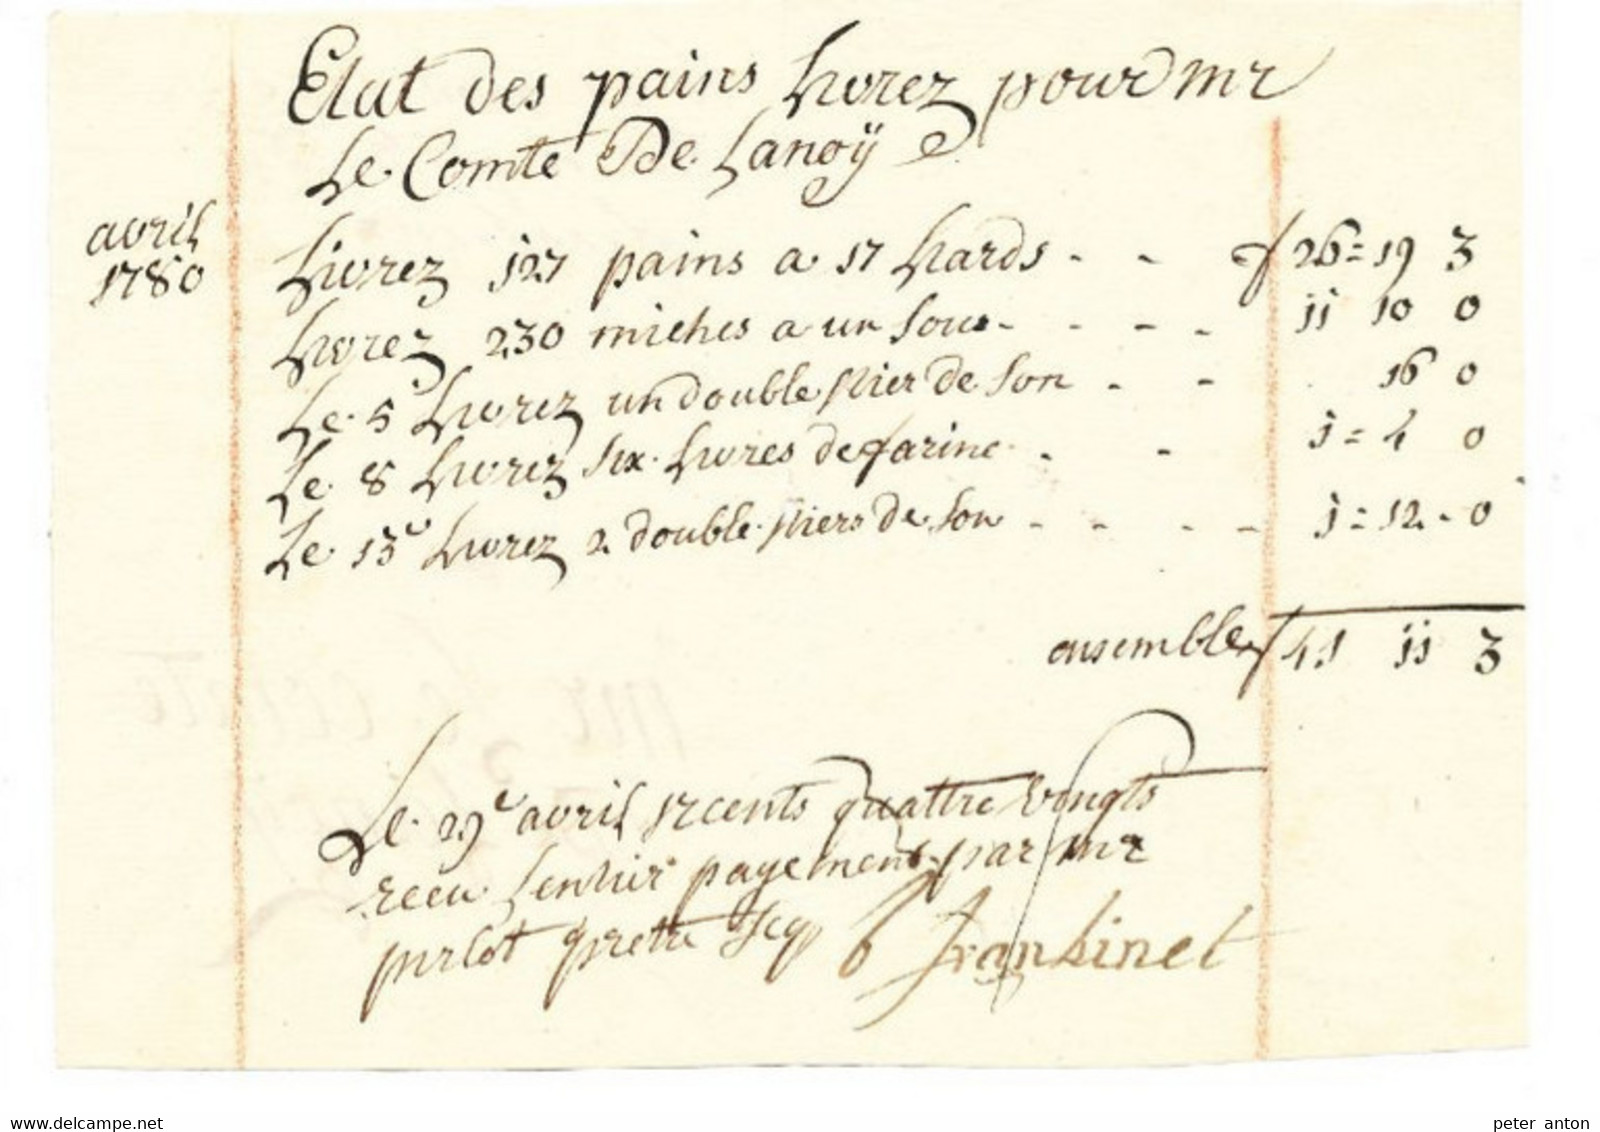 Etat des pains livrez pour mr
Le Comte De Lanoÿ
avril
1780
Livrez 127 pains a 17 liards - - f 26 = 19 3
livrez 230 miches a un sous - - - - 11 10 0
Le 5 livrez un double stier de son - - 16 0
Le 8 livrez six livres de farine - - 1 = 4 0
Le 13e livrez 2 double stiers de son - - - - 1 = 12 - 0
ensemble f 41 11 3
Le 29e avril 17cents quattre vingts
receu lentier payement par mr
pirlot pretre
delcampe.net
peter anton